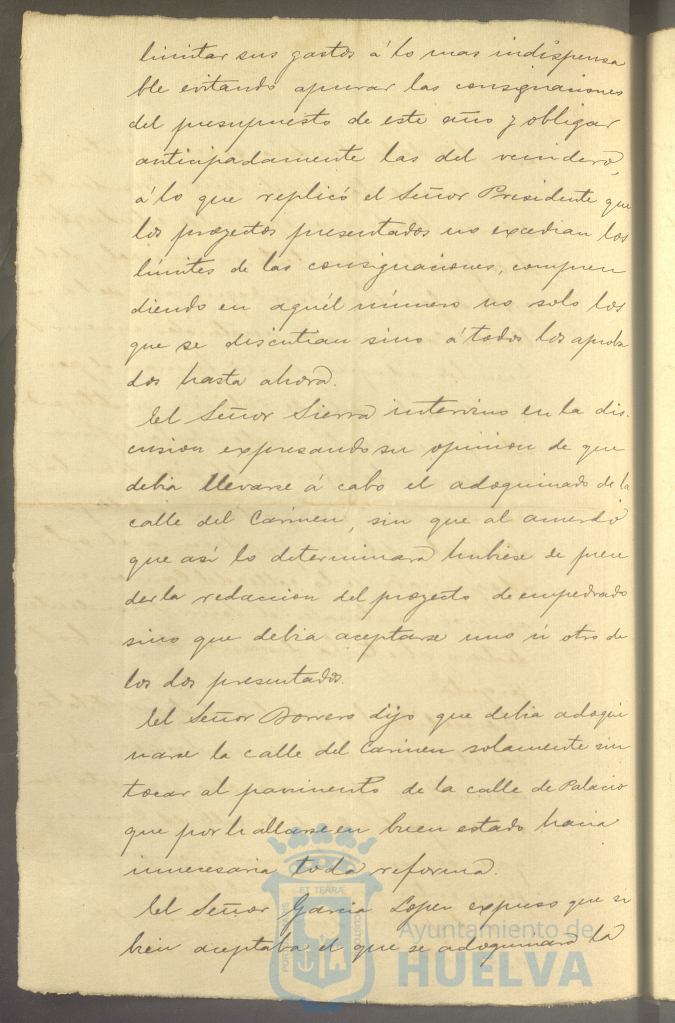 limitar sus gastos á lo mas indispensa
ble evitando apurar las consignaciones
del presupuesto de este año y obligar
anticipadamente las del venidero,
á lo que replicó el Señor Presidente que
los proyectos presentados no excedian los
límites de las consignaciones, compren
diendo en aquél número no solo los
que se discutian sino á todos los aproba
dos hasta ahora.
El Señor Sierra intervino en la dis-
cusion expresando su opinion de que
debia llevarse á cabo el adoquinado de la
calle del Carmen, sin que al acuerdo
que así lo determinara hubiese de
der la redaccion del proyecto de empedrado
sino que debia aceptarse uno ú otro de
los dos presentados.
El Señor Borrero dijo que debia adoqui
narse la calle del Carmen solamente sin
tocar al pavimento de la calle de Palacio
que por hallarse en buen estado hacia
innecesaria toda reforma.
El Señor Garcia Lopez expuso que si
bien aceptaba el que se adoquinara la
ET TERRÆ
Ayuntamiento de
HUELVA